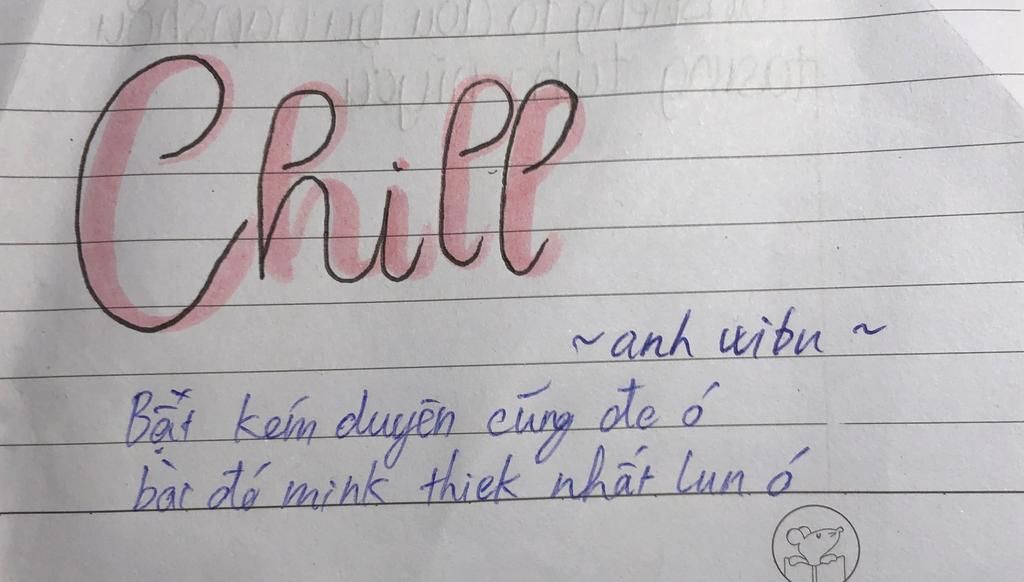 Chill
~ anh wibu ~
Bật kém duyên cũng đc ó
bàc đó mink thiek nhất lun ó